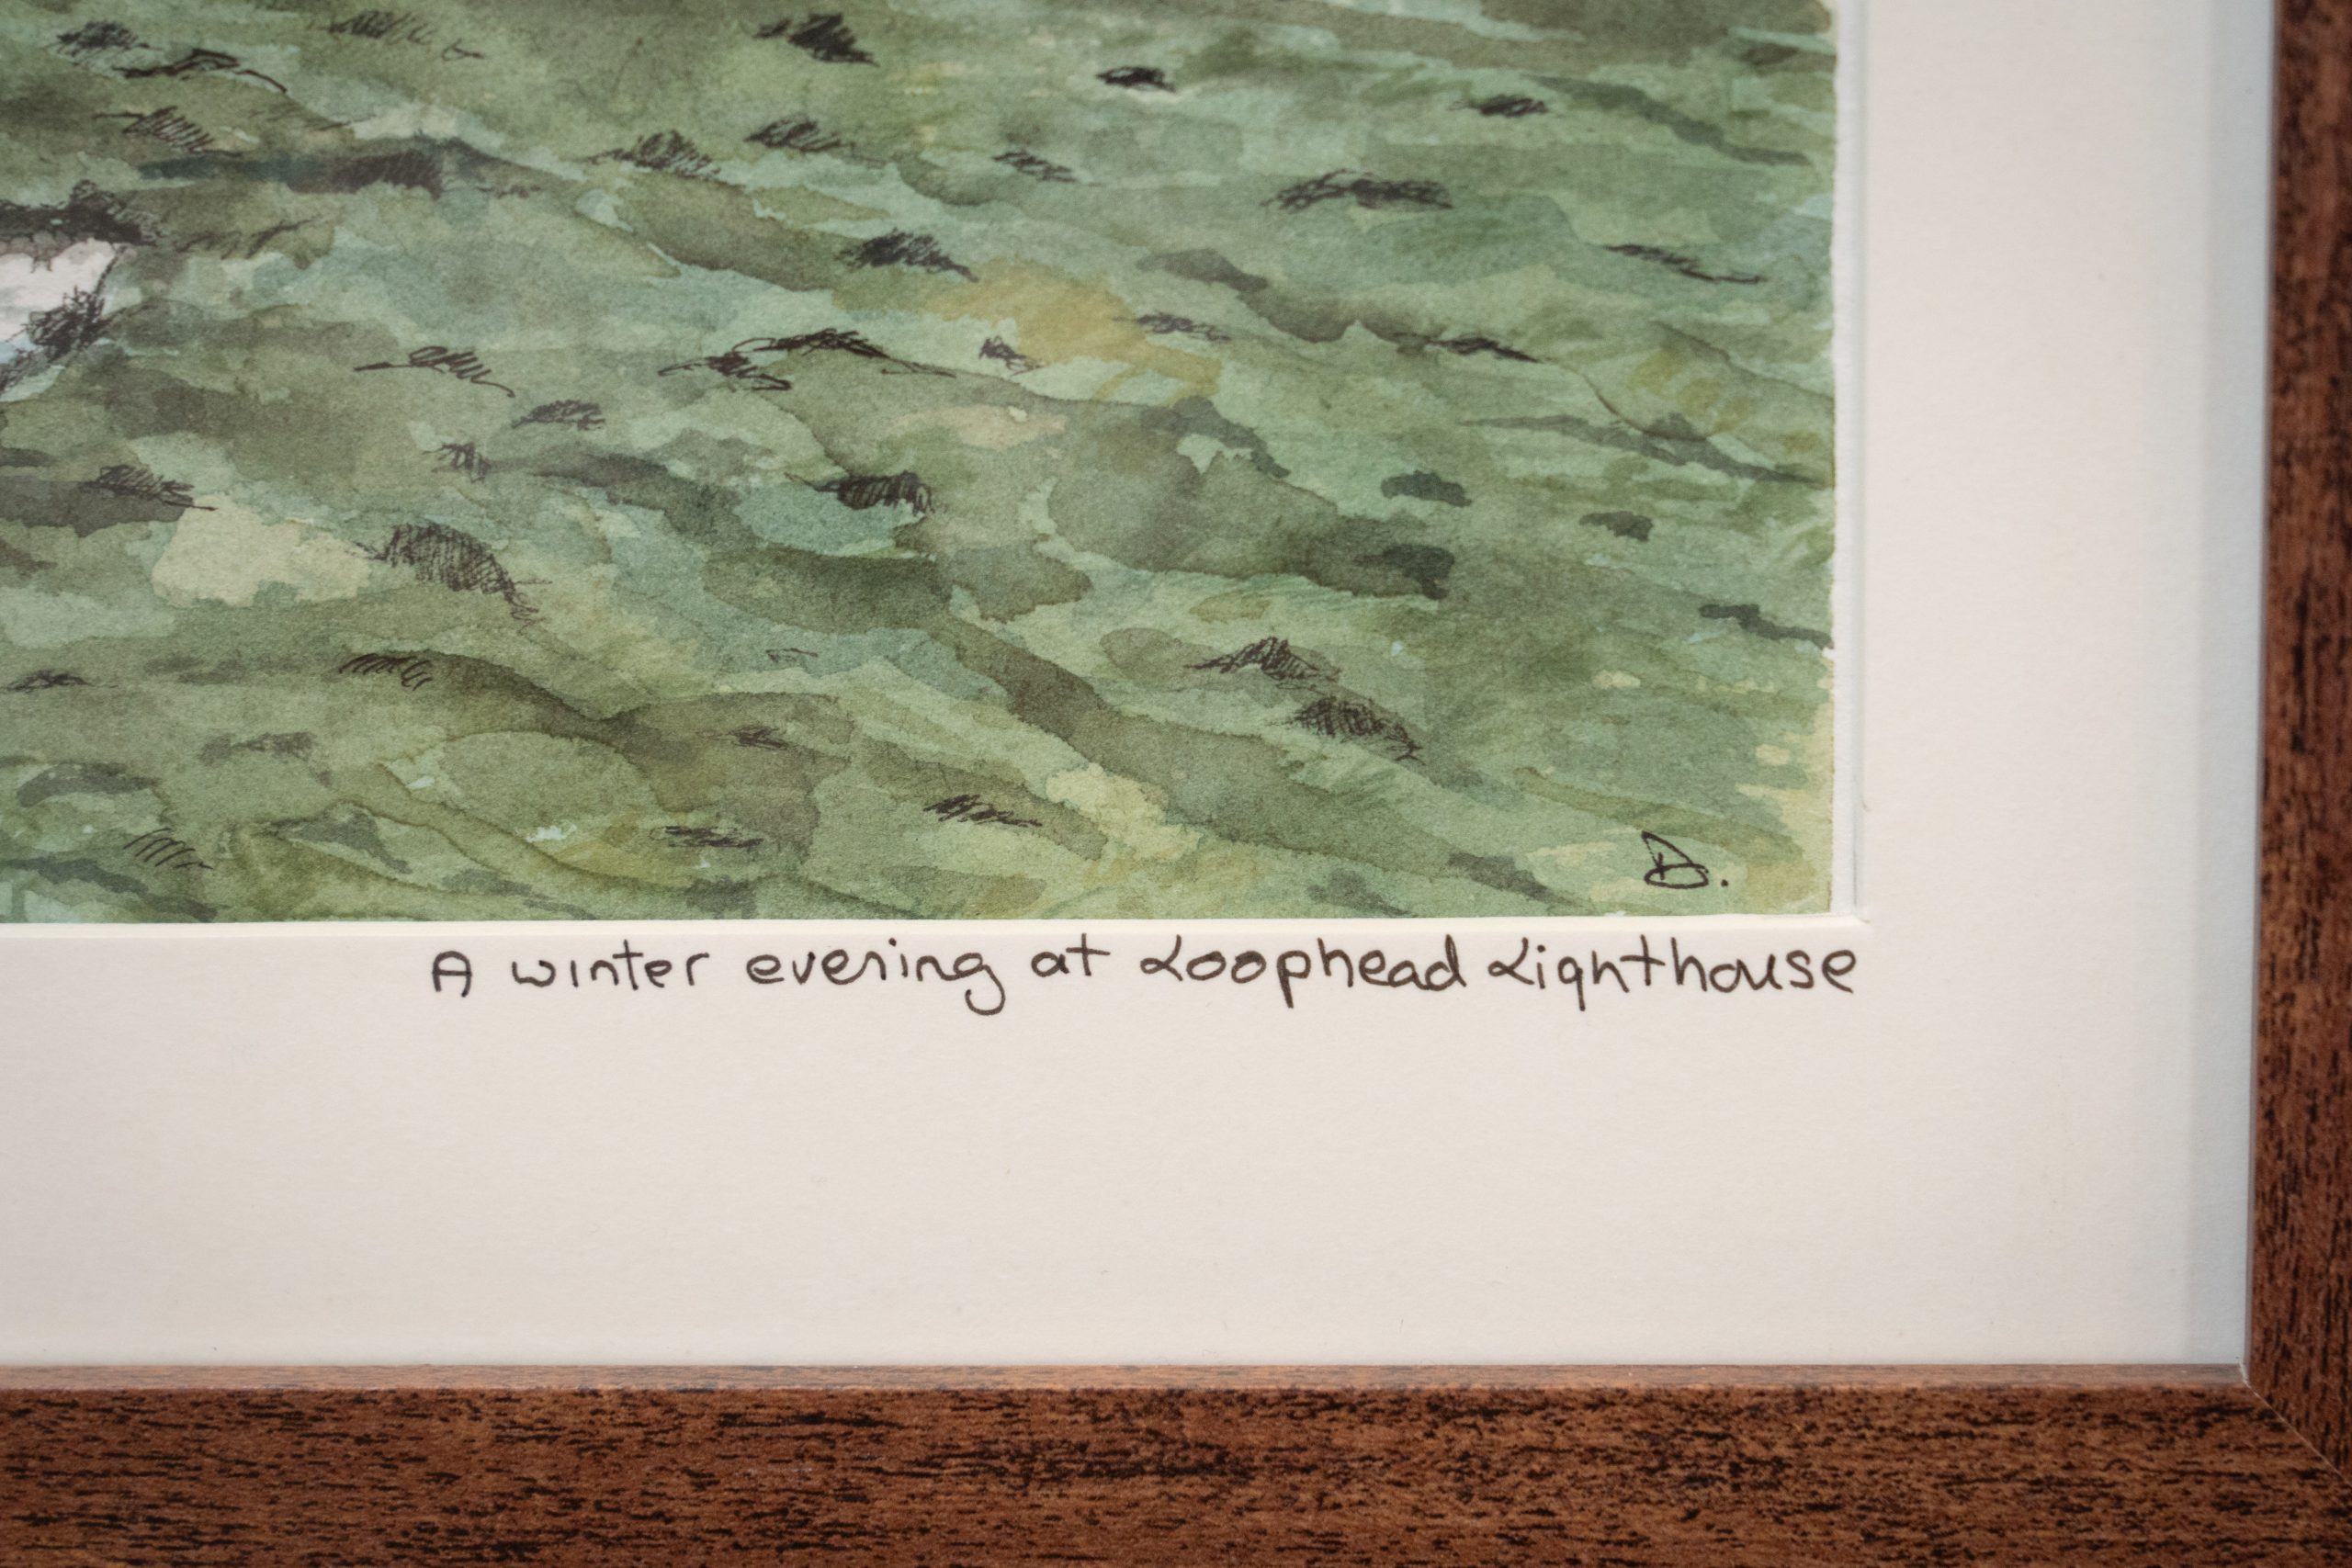 D.
A winter evening at Loophead Lighthouse